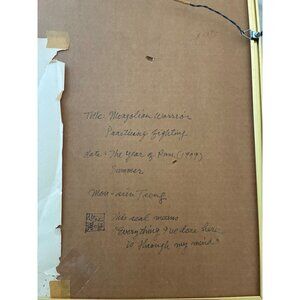 Title: Mongolian Warrior
Practicing fighting
date: The Year of Ram, (1979)
Summer
Mou-sien Tseng
The seal means
"Everything I've done here
is through my mind"